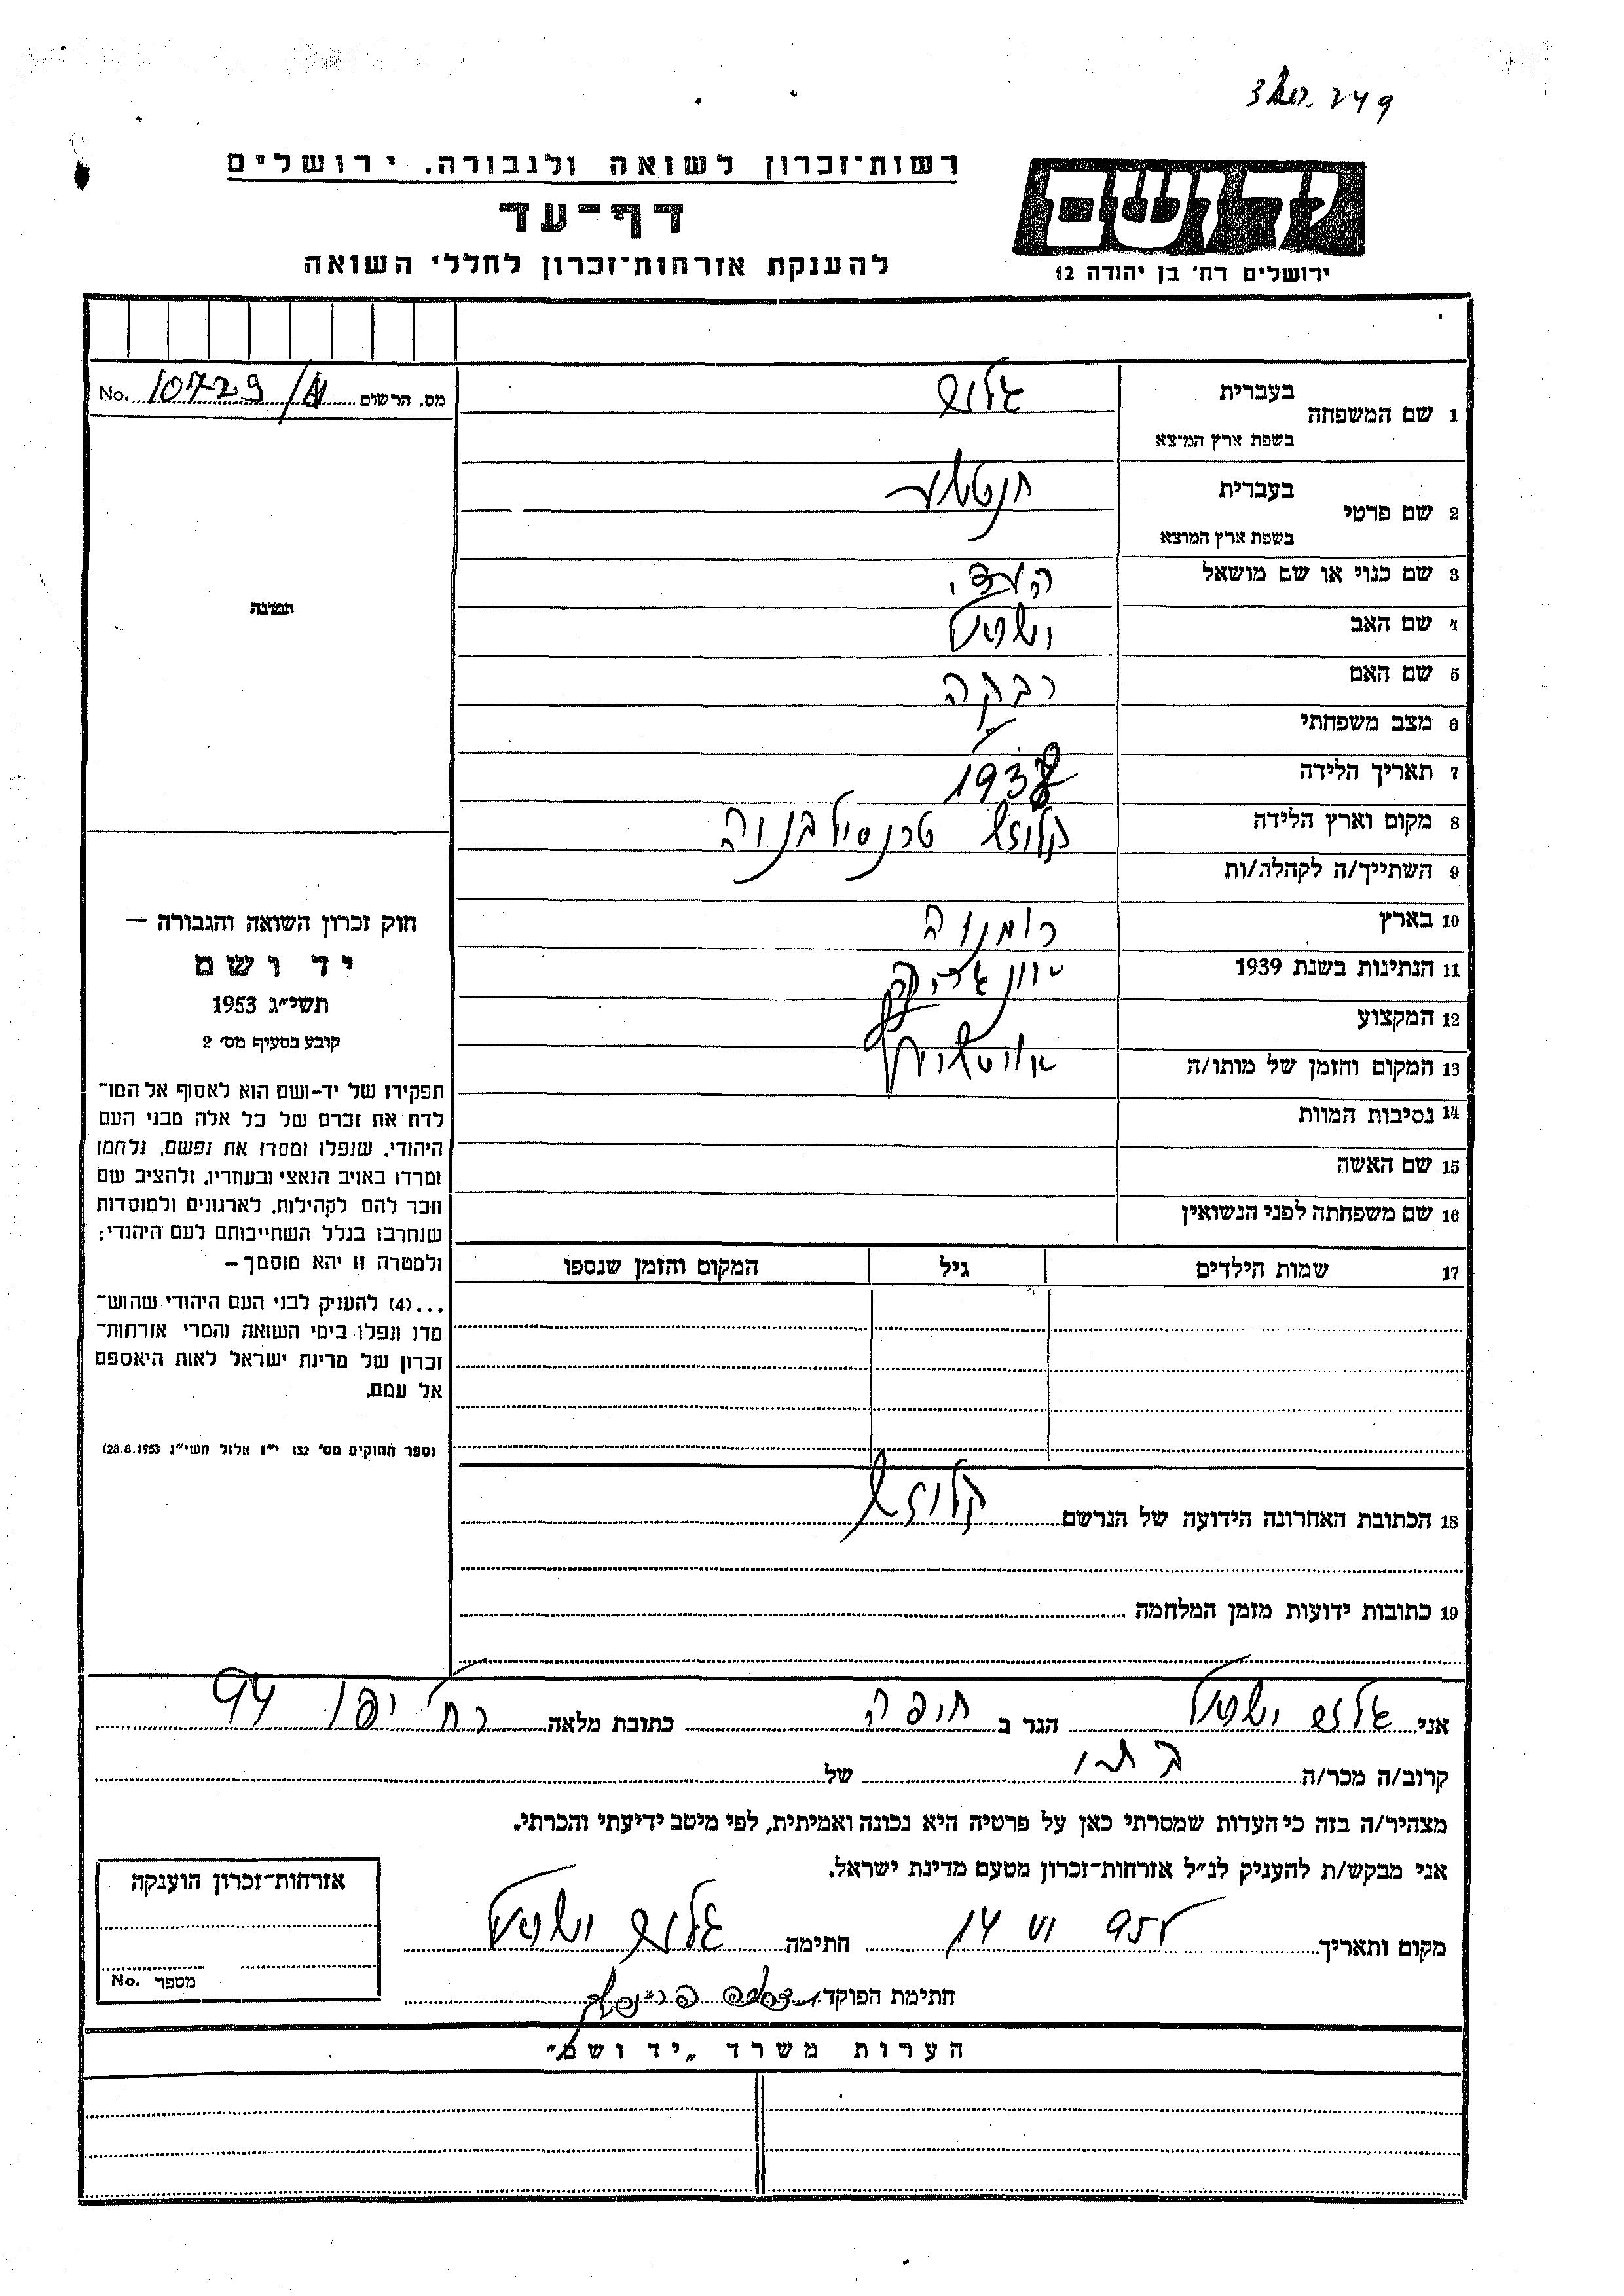 רשות־זכרון לשואה ולגבורה, ירושלים
ידושם
דף-עד
להענקת אזרחות־זכרון לחללי השואה
ירושלים רח' בן יהודה 12
מס. הרשום No. 10729
1 שם המשפחה
בעברית
בשפת ארץ המוצא
2 שם פרטי
בעברית
בשפת ארץ המוצא
3 שם כנוי או שם מושאל
4 שם האב
5 שם האם רבקה
6 מצב משפחתי
7 תאריך הלידה
8 מקום וארץ הלידה קלוזש טרנסילבניה
9 השתייך/ה לקהלה/ות
10 בארץ רומניה
11 הנתינות בשנת 1939
12 המקצוע
13 המקום והזמן של מותו/ה אושוויץ
14 נסיבות המוות
15 שם האשה
16 שם משפחתה לפני הנשואין
17 שמות הילדים גיל המקום והזמן שנספו
18 הכתובת האחרונה הידועה של הנרשם קלוזש
19 כתובות ידועות מזמן המלחמה
תמונה
חוק זכרון השואה והגבורה –
יד ושם
תשי"ג 1953
קובע בסעיף מס' 2
תפקידו של יד-ושם הוא לאסוף אל המו־
לדת את זכרם של כל אלה מבני העם
היהודי, שנפלו ומסרו את נפשם, נלחמו
ומרדו באויב הנאצי ובעוזריו, ולהציב שם
וזכר להם לקהילות, לארגונים ולמוסדות
שנחרבו בגלל השתייכותם לעם היהודי;
ולמטרה זו יהא מוסמך –
...(4) להעניק לבני העם היהודי שהוש־
מדו ונפלו בימי השואה והמרי אזרחות־
זכרון של מדינת ישראל לאות היאספם
אל עמם.
(ספר החוקים מס' 132 י"ז אלול תשי"ג 28.8.1953)
אני הגר ב חיפה כתובת מלאה רח' יפו 94
קרוב/ה מכר/ה של
מצהיר/ה בזה כי העדות שמסרתי כאן על פרטיה היא נכונה ואמיתית, לפי מיטב ידיעתי והכרתי.
אני מבקש/ת להעניק לנ"ל אזרחות-זכרון מטעם מדינת ישראל.
מקום ותאריך 14 VI 955 חתימה
חתימת הפוקד
אזרחות-זכרון הוענקה
מספר No.
הערות משרד „יד ושם"